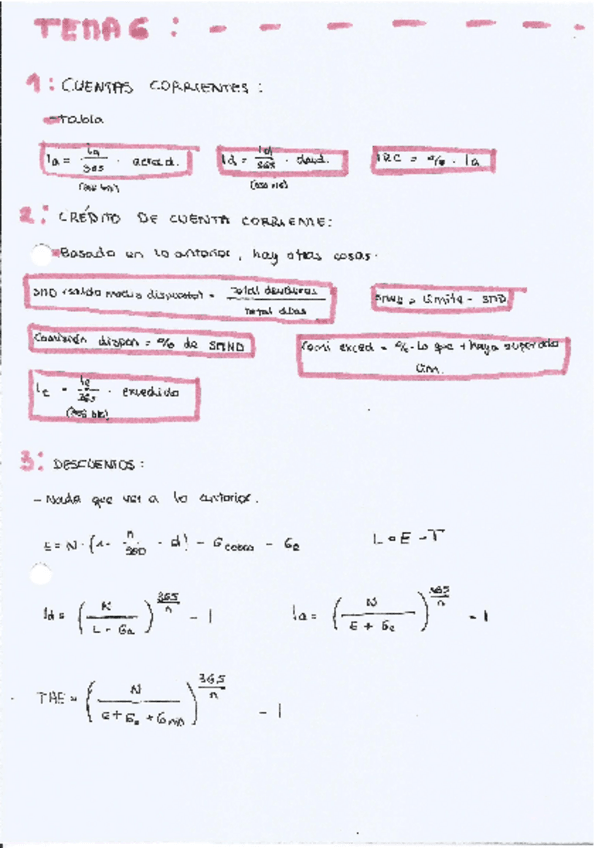 TEMA 6 :
1: CUENTAS CORRIENTES :
- Tabla
Ia = ia/365 · acreed. Id = id/365 · deud. IRC = % · Ia
(366 bis) (366 bis)
2: CRÉDITO DE CUENTA CORRIENTE:
Basado en lo anterior, hay otras cosas.
SMD (saldo medio dispuesto) = Total deudores / total días SMND = Límite - SMD
Comisión dispon = % de SMND Comi exced = % · lo que + haya superado
Lim.
Ie = ie/365 · excedido
(366 bis)
3: DESCUENTOS :
- Nada que ver a lo anterior.
E = N · (1 - n/360 · d) - Gcobro - Ge L = E - T
Id = (N / L - Ga)^365/n - 1 Ia = (N / E + Ge)^365/n - 1
TAE = (N / E + Ge + Gmin)^365/n - 1